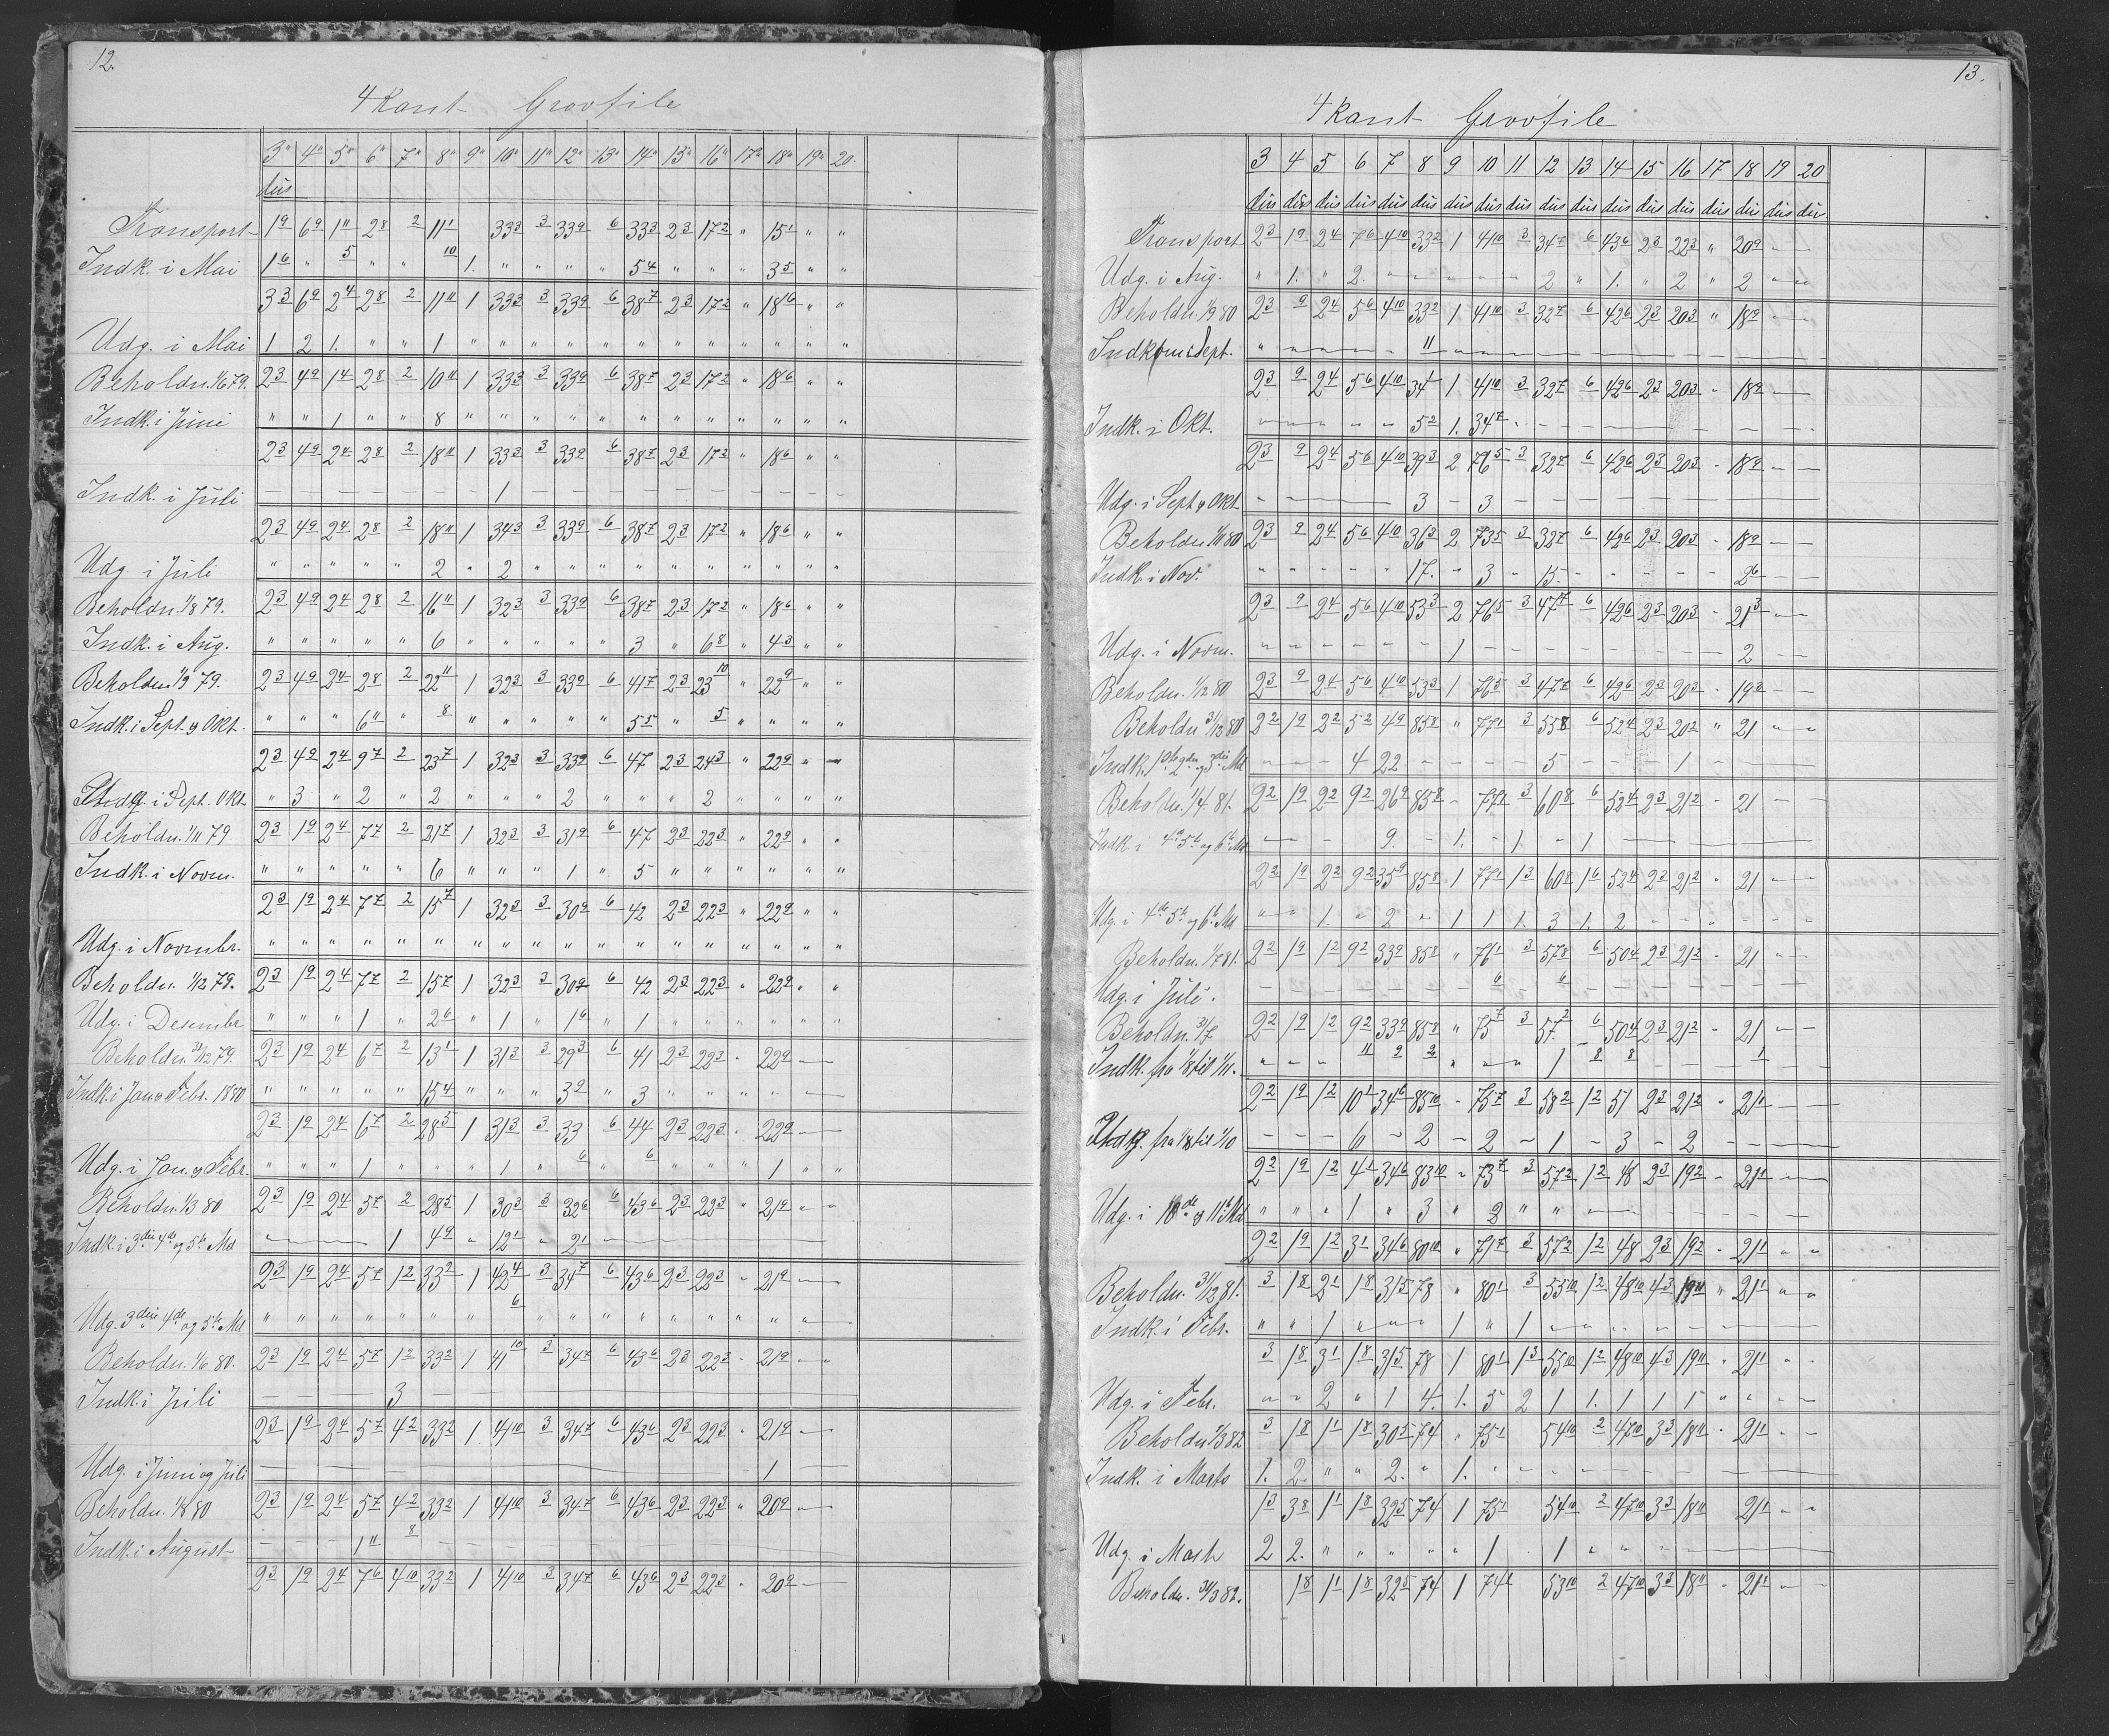 12.
4 Kant Grovfile
3" 4" 5" 6" 7" 8" 9" 10" 11" 12" 13" 14" 15" 16" 17" 18" 19" 20.
dus
Transport 1 9 6 9 1 11 2 8 2 11 1 33 3 3 33 9 6 33 3 2 3 17 2 " 15 1 " "
Indk. i Mai 1 6 " 5 " " 10 1. " " " " 5 4 " " " 3 5 " "
3 3 6 9 2 4 2 8 2 11 11 1 33 3 3 33 9 6 38 7 2 3 17 2 " 18 6 " "
Udg. i Mai 1 2 1. " " 1 " " " " " " " " " " " "
Beholdn. 1/6 79. 2 3 4 9 1 4 2 8 2 10 11 1 33 3 3 33 9 6 38 7 2 3 17 2 " 18 6 " "
Indk. i Juni " " 1 " " 8 " " " " " " " " " " " "
2 3 4 9 2 4 2 8 2 18 11 1 33 3 3 33 9 6 38 7 2 3 17 2 " 18 6 " "
Indk. i Juli – – – – – – – 1 – – – – – – – – – –
2 3 4 9 2 4 2 8 2 18 11 1 34 3 3 33 9 6 38 7 2 3 17 2 " 18 6 " "
Udg. i Juli " " " " " 2 " 2 " " " " " " " " " "
Beholdn. 1/8 79. 2 3 4 9 2 4 2 8 2 16 11 1 32 3 3 33 9 6 38 7 2 3 17 2 " 18 6 " "
Indk. i Aug. " " " " " 6 " " " " " 3 " 6 8 " 4 3 " "
Beholdn. 1/9 79. 2 3 4 9 2 4 2 8 2 22 11 1 32 3 3 33 9 6 41 7 2 3 23 10 " 22 9 " "
Indk. i Sept. og Okt. " " " 6 11 " 8 " " " " " 5 5 " 5 " " " "
2 3 4 9 2 4 9 7 2 23 7 1 32 3 3 33 9 6 47 2 3 24 3 " 22 9 "
Udg. i Sept. Okt. " 3 " 2 " 2 " " " 2 " " " 2 " " " "
Beholdn. 1/11 79 2 3 1 9 2 4 7 7 2 21 7 1 32 3 3 31 9 6 47 2 3 22 3 " 22 9 " "
Indk. i Novm. " " " " " 6 " " " 1 " 5 " " " " " "
2 3 1 9 2 4 7 7 2 15 7 1 32 3 3 30 9 6 42 2 3 22 3 " 22 9 " "
Udg. i Novembr. " " " " " " " " " " " " " " " " " "
Beholdn. 1/12 79. 2 3 1 9 2 4 7 7 2 15 7 1 32 3 3 30 9 6 42 2 3 22 3 " 22 9 " "
Udg. i Desembr " " " 1 " 2 6 " 1 " 1 6 " 1 " " " " " "
Beholdn. 31/12 79. 2 3 1 9 2 4 6 7 2 13 1 1 31 3 3 29 3 6 41 2 3 22 3 " 22 9 –
Indk. i Jan og Febr. 1880 " " " " " 15 4 " " " 3 9 " 3 " " " " –
2 3 1 9 2 4 6 7 2 28 5 1 31 3 3 33 6 44 2 3 22 3 " 22 9 –
Udg. i Jan. og Febr. " " " 1 " " " 1 " 6 " 6 " " " 1 " "
Beholdn. 1/3 80 2 3 1 9 2 4 5 7 2 28 5 1 30 3 3 32 6 6 43 6 2 3 22 3 " 21 9 " "
Indk. i 3die 4de og 5te Md – – – – 1 4 9 " 12 1 " 2 1 –
2 3 1 9 2 4 5 7 1 2 33 2 1 42 4 3 34 7 6 43 6 2 3 22 3 " 21 9 –
Udg. 3die 4de og 5te Md " " " " " " " 6 " " " " " " " " –
Beholdn. 1/6 80. 2 3 1 9 2 4 5 7 1 2 33 2 1 41 10 3 34 7 6 43 6 2 3 22 3 " 21 9 – "
Indk. i Juli – – – – 3 –
2 3 1 9 2 4 5 7 4 2 33 2 1 41 10 3 34 7 6 43 6 2 3 22 3 " 21 9 –
Udg. i Juni og Juli – 1 –
Beholdn. 1/8 80 2 3 1 9 2 4 5 7 4 2 33 2 1 41 10 3 34 7 6 43 6 2 3 22 3 " 20 9 –
Indk. i August – – – 1 11 8 – – –
2 3 1 9 2 4 7 6 4 10 33 2 1 41 10 3 34 7 6 43 6 2 3 22 3 " 20 9 –
13.
4 Kant Grovfile
3 4 5 6 7 8 9 10 11 12 13 14 15 16 17 18 19 20
dus dus dus dus dus dus dus dus dus dus dus dus dus dus dus dus dus dus
Transport 2 3 1 9 2 4 7 6 4 10 33 2 1 41 10 3 34 7 6 43 6 2 3 22 3 " 20 9 –
Udg. i Aug. " 1. " 2. " " " " " 2 " 1. " 2 " 2 " "
Beholdn. 1/9 80 2 3 9 2 4 5 6 4 10 33 2 1 41 10 3 32 7 6 42 6 2 3 20 3 " 18 9 –
Indkom i Sept. " – – – – 11 – – – – –
2 3 9 2 4 5 6 4 10 34 1 1 41 10 3 32 7 6 42 6 2 3 20 3 " 18 9 –
Indk. i Okt. – – – – – 5 2 1. 34 7 – – – – –
2 3 9 2 4 5 6 4 10 39 3 2 76 5 3 32 7 6 42 6 2 3 20 3 " 18 9 – –
Udg. i Sept og Okt – – – 3 – 3 – – – – – –
Beholdn 1/11 80 2 3 9 2 4 5 6 4 10 36 3 2 73 5 3 32 7 6 42 6 2 3 20 3 " 18 9 – –
Indk. i Nov. " " " " " 17. – 3 – 15. – – – – – 2 6 – –
2 3 9 2 4 5 6 4 10 53 3 2 76 5 3 47 7 6 42 6 2 3 20 3 " 21 3 –
Udg. i Novm. – – – – – – 1 – – – – – – – – 2 – –
Beholdn. 1/12 80 2 3 9 2 4 5 6 4 10 53 3 1 76 5 3 47 7 6 42 6 2 3 20 3 " 19 3 – –
Beholdn 31/12 80 2 2 1 9 2 2 5 2 4 9 85 8 " 77 1 3 55 8 6 52 4 2 3 20 2 " 21 " "
Indk. 1ste 2den og 3die Md – – – 4 22 – – – – 5 – – – 1 – – –
Beholdn. 1/4 81. 2 2 1 9 2 2 9 2 26 9 85 8 – 77 1 3 60 8 6 52 4 2 3 21 2 – 21 – –
Indk. i 4de 5te og 6te Md – – – 9. – 1. – 1 – 1 –
2 2 1 9 2 2 9 2 35 9 85 8 1 77 1 1 3 60 8 1 6 52 4 2 3 21 2 " 21 –
Udg. i 4de 5te og 6te Md " " 1. " 2 " 1 1 1. 3 1. 2 – – – – –
Beholdn. 1/7 81. 2 2 1 9 1 2 9 2 33 9 85 8 " 76 1 3 57 8 6 50 4 2 3 21 2 " 21 " –
Udg. i Juli. – – – – – – – 6 – 6 – – – – – – –
Beholdn. 31/7 2 2 1 9 1 2 9 2 33 9 85 8 " 75 7 3 57 2 6 50 4 2 3 21 2 " 21 – –
Indk. fra 1/8 til 1/11. " " – 11 9 2 " " – 1 8 8 – – – 1 – –
2 2 1 9 1 2 10 1 34 6 85 10 – 75 7 3 58 2 1 2 51 2 3 21 2 " 21 1 –
Udg. fra 1/8 til 1/10 – – – 6 – 2 – 2 – 1 – 3 – 2 – – –
2 2 1 9 1 2 4 1 34 6 83 10 " 73 7 3 57 2 1 2 48 2 3 19 2 – 21 1 –
Udg. i 10de og 11te Md " " " 1 " 3 " 2 " " –
2 2 1 9 1 2 3 1 34 6 80 10 " 71 7 3 57 2 1 2 48 2 3 19 2 " 21 1 " "
Beholdn. 31/12 81. 3 1 8 2 1 1 8 31 5 78 " 80 1 3 55 10 1 2 48 10 4 3 19 11 " 21 1 " "
Indk. i Febr. " " 1 " " " 1 " 1 –
3 1 8 3 1 1 8 31 5 78 1 80 1 1 3 55 10 1 2 48 10 4 3 19 11 " 21 1 " "
Udg. i Febr. " " 2 " 1 4. 1. 5 2 1 1. 1 1 1 " " – –
Beholdn 1/3 82 3 1 8 1 1 1 8 30 5 74 " 75 1 54 10 2 47 10 3 3 18 11 " 21 1 – –
Indk. i Marts 1. 2. " " 2. " 1. –
1 3 3 8 1 1 1 8 32 5 74 1 75 1 54 10 2 47 10 3 3 18 11 21 1 " "
Udg. i Marts 2 2. " " " " " 1 " 1 " " –
Beholdn. 31/3 82. 1 8 1 1 1 8 32 5 74 1 74 1 53 10 2 47 10 3 3 18 11 " 21 1 – –